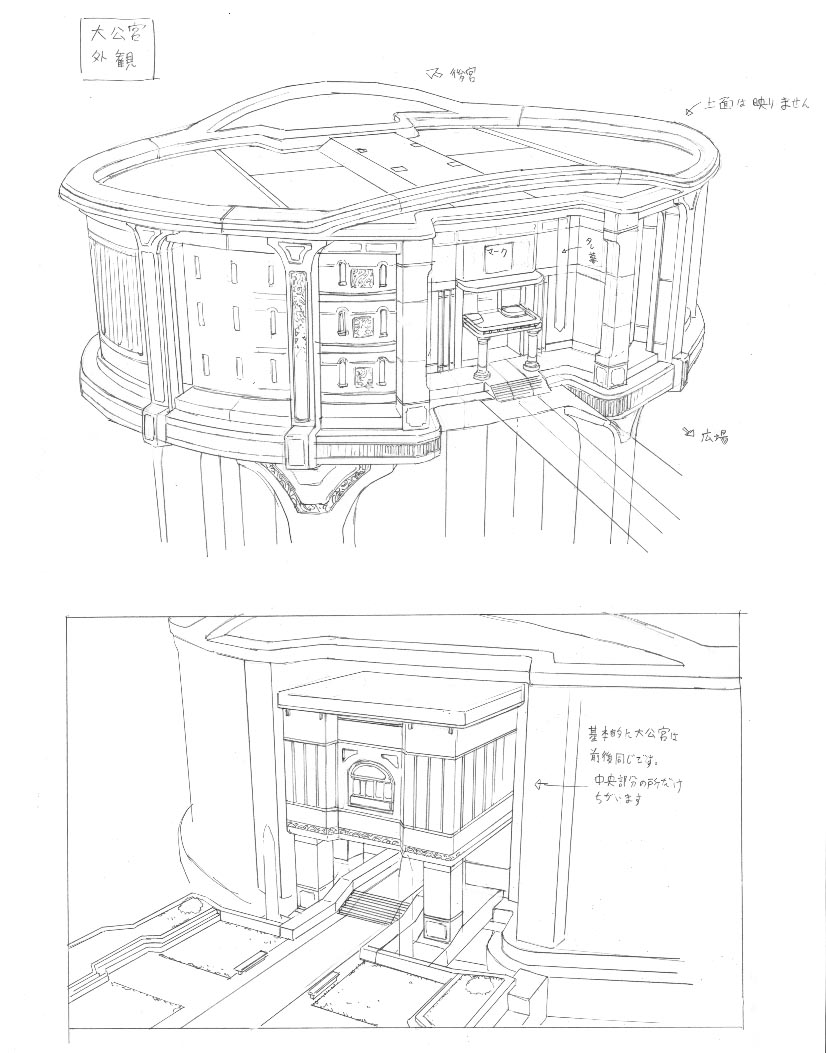 大公宮
外観
後宮
上面は映りません
マーク
タレ幕
広場
基本的に大公宮は
前後同じです。
中央部分の所だけ
ちがいます